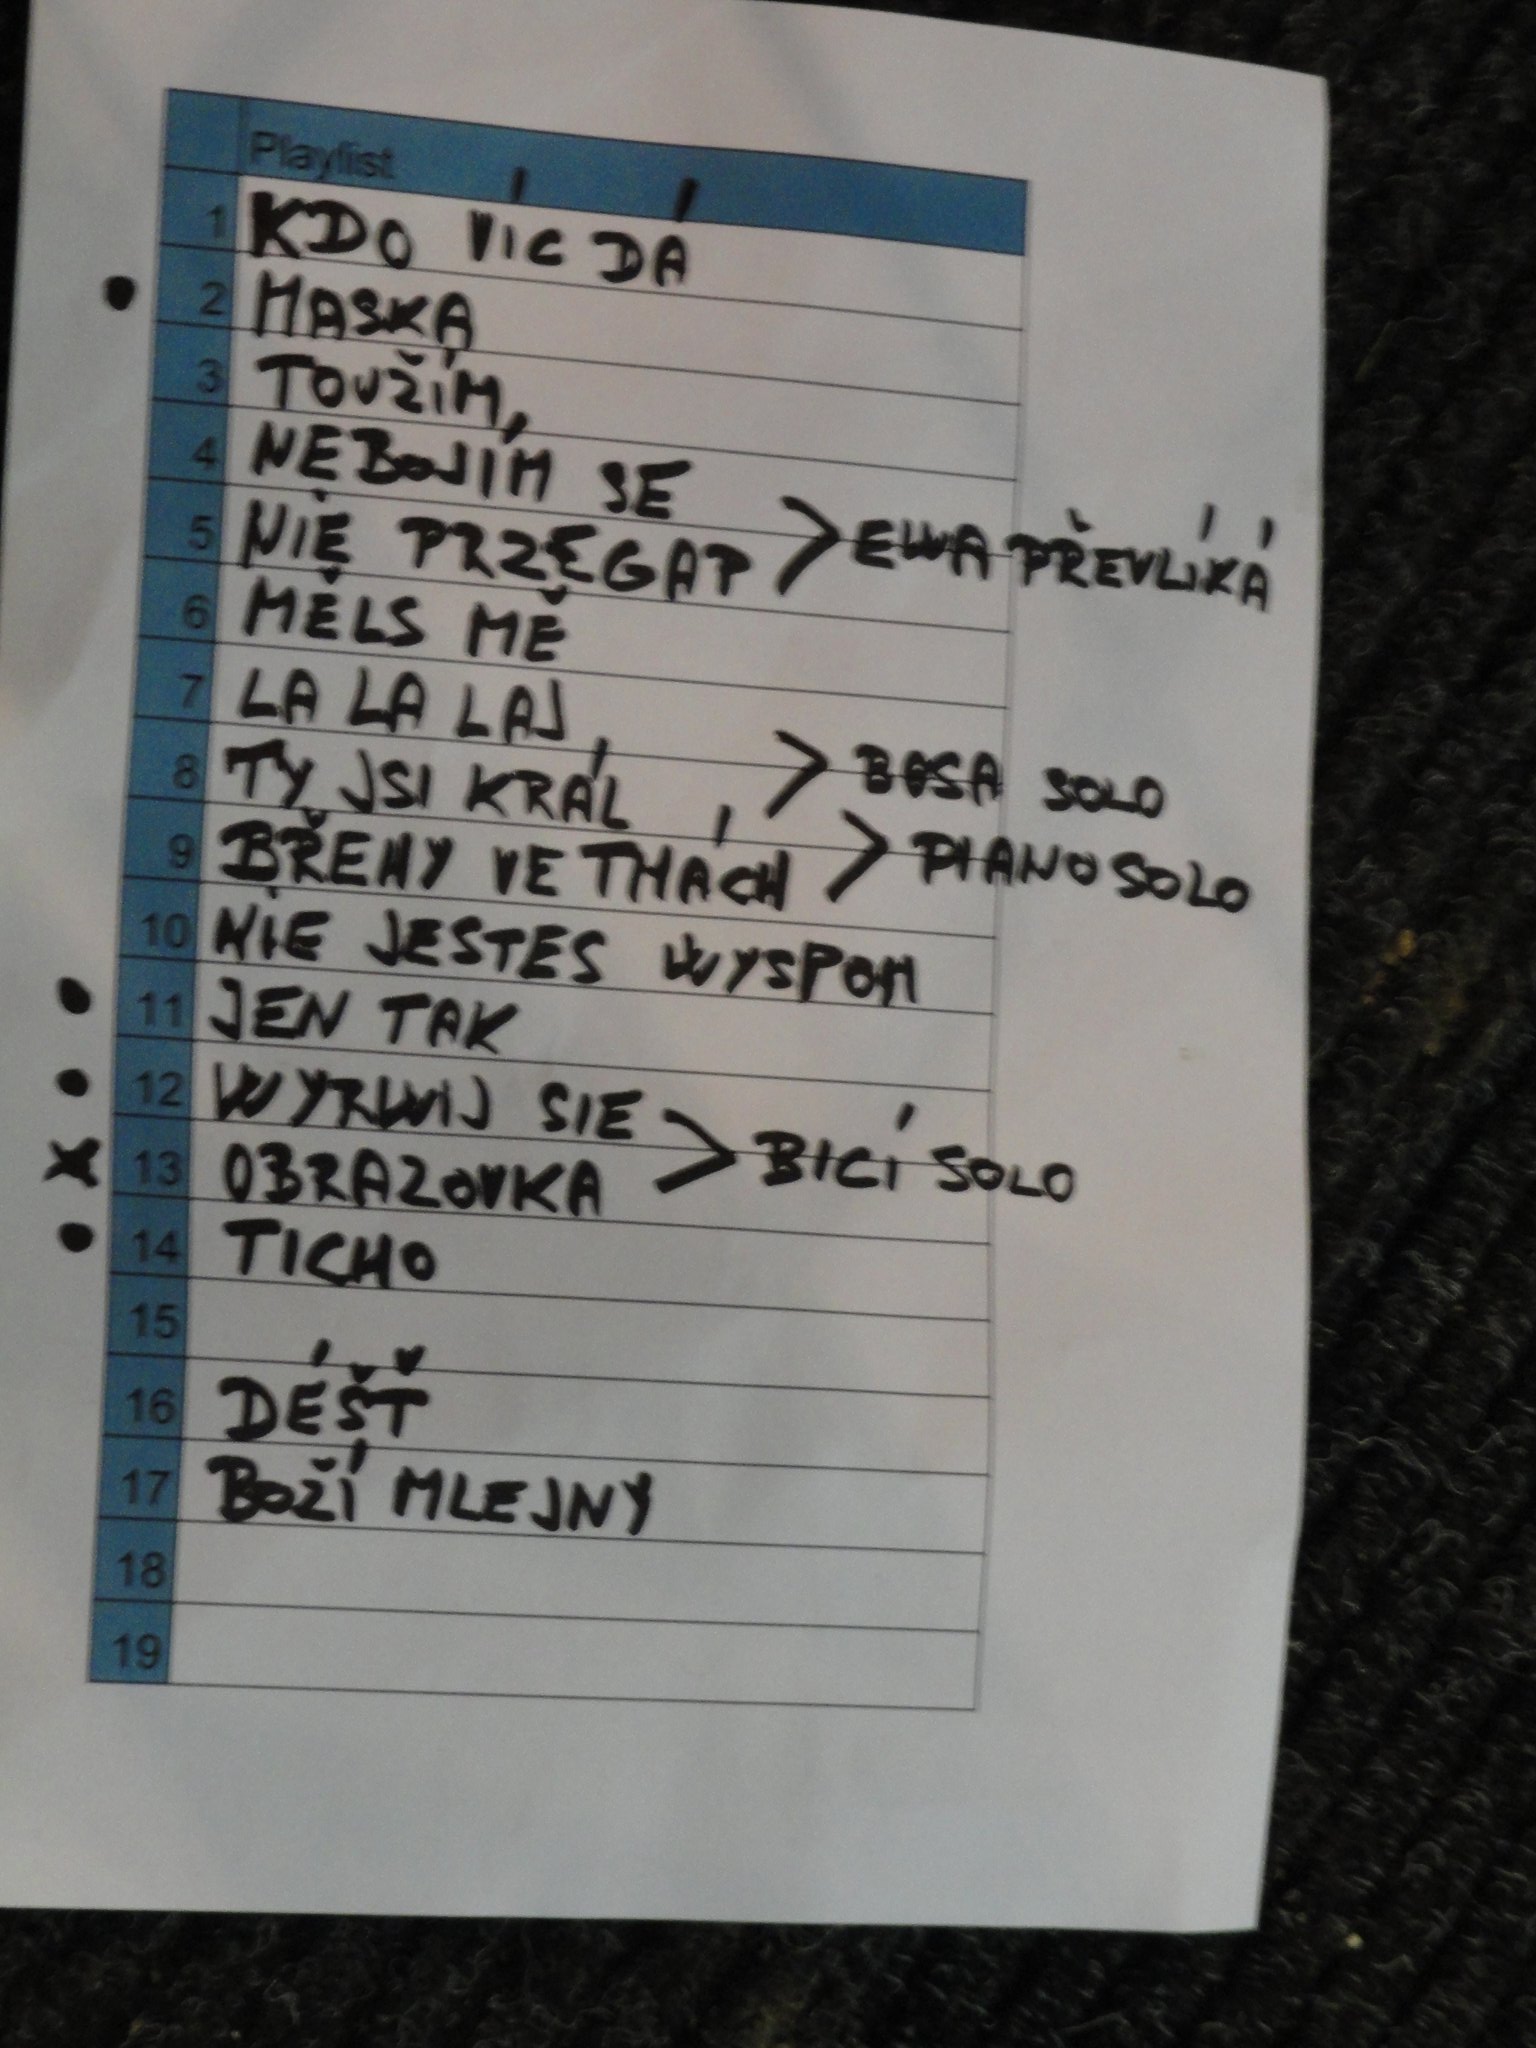 Playlist
1 KDO VÍC DÁ
• 2 MASKA
3 TOUŽÍM
4 NEBOJÍM SE
5 NIE PRZEGAP > EWA PŘEVLÍKÁ
6 MĚLS MĚ
7 LA LA LAJ
8 TY JSI KRÁL > BOSA SOLO
9 BŘEHY VE TMÁCH > PIANO SOLO
10 NIE JESTES WYSPOM
• 11 JEN TAK
• 12 WYRWIJ SIE
x 13 OBRAZOVKA > BICÍ SOLO
• 14 TICHO
15
16 DÉŠŤ
17 BOŽÍ MLEJNY
18
19